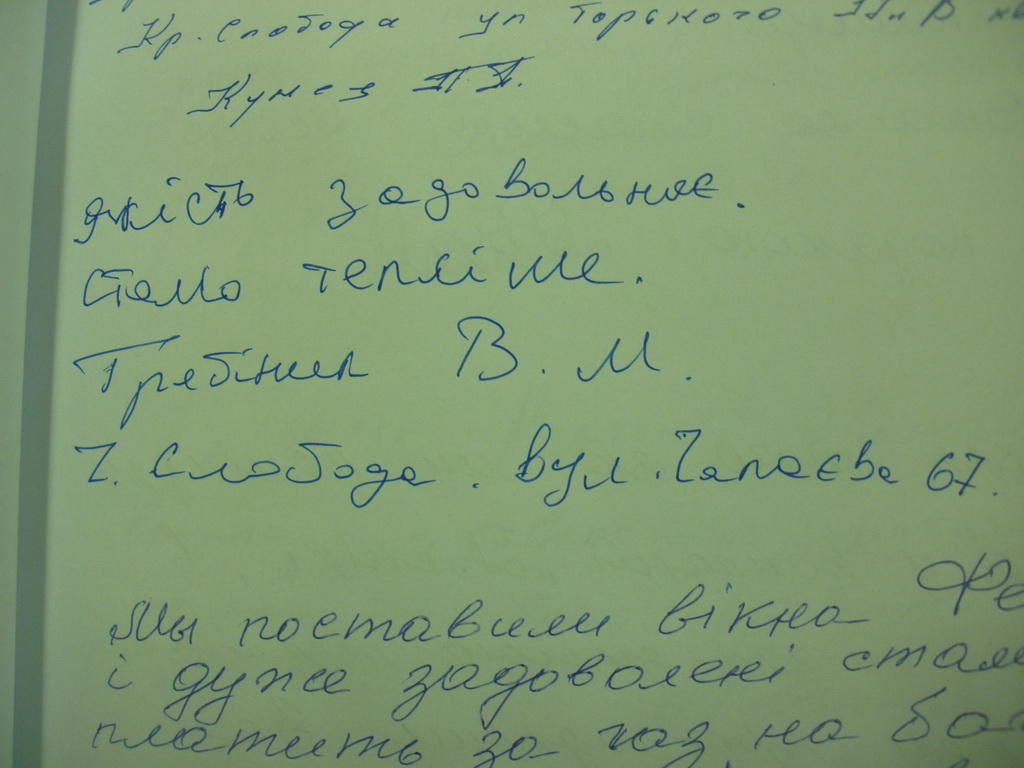 Кр. Слобода ул Горького
Кунез П.П.
якість задовольняє.
стало тепліше.
Гребіник В. М.
Ч. Слобода. вул. Чапаєва 67.
Мы поставили вікна
і дуже задоволені стали
платить за газ на